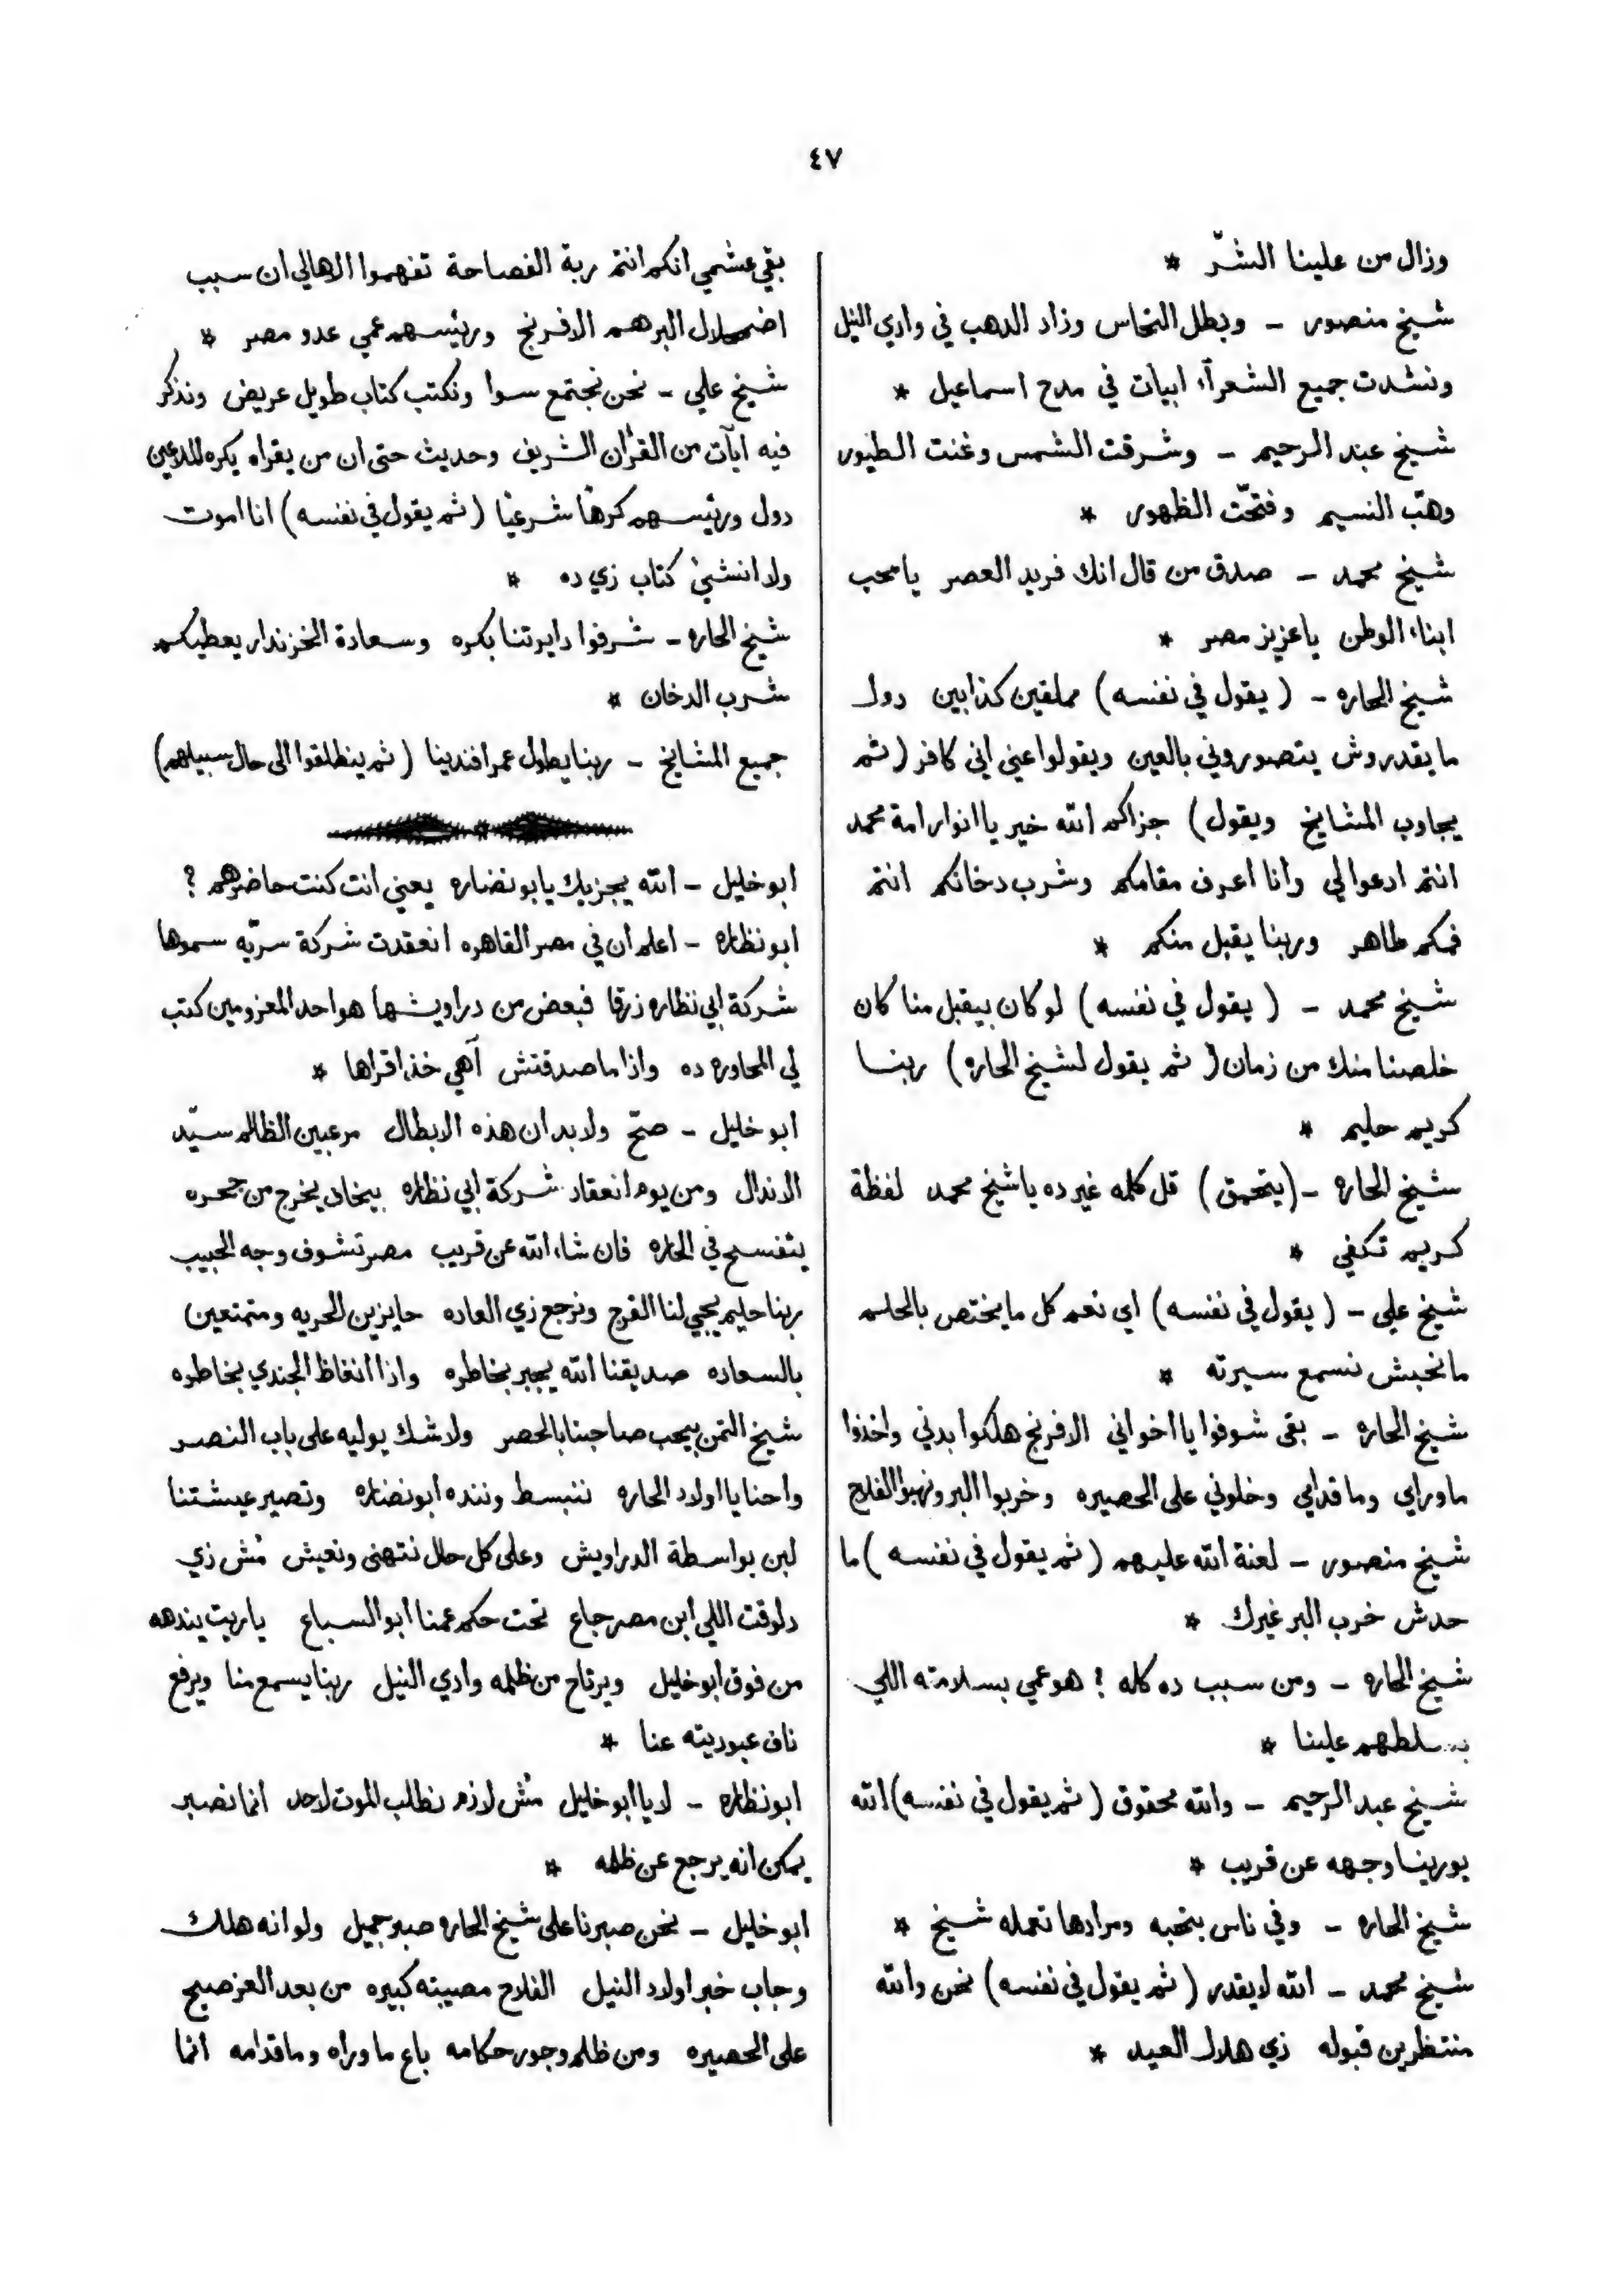 ٤٧
وزال من علينا الشرّ *
شيخ منصور – وبطل النحاس وزاد الدهب في وادي النيل
ونشدت جميع الشعرآء ابيات في مدح اسماعيل *
شيخ عبد الرحيم – وشرقت الشمس وغنت الطيور
وهبّ النسيم وفتحّت الظهور *
شيخ محمد – صدق من قال انك فريد العصر يا محب
ابناء الوطن يا عزيز مصر *
شيخ الحاره – (يقول في نفسه) مملقين كذابين دول
ما يقدروش يتصوروني بالعين ويقولوا عني اني كافر (ثم
يجاوب المشايخ ويقول) جزاكم الله خير يا انوار امة محمد
انتم ادعوا لي وانا اعرف مقامكم وشرب دخانكم انتم
فمكم طاهر وربنا يقبل منكم *
شيخ محمد – (يقول في نفسه) لو كان بيقبل منا كان
خلصنا منك من زمان (ثم يقول لشيخ الحاره) ربنا
كريم حليم *
شيخ الحاره – (يتحمق) قل كلمه غير ده يا شيخ محمد لفظة
كريم تكفي *
شيخ علي – (يقول في نفسه) اي نعم كل ما يختص بالحلم
ما نحبش نسمع سيرته *
شيخ الحاره – بقى شوفوا يا اخواني الافرنج هلكوا بدني واخذوا
ما وراي وما قدامي وخلوني على الحصيره وخربوا البر ونهبوا الفلاح
شيخ منصور – لعنة الله عليهم (ثم يقول في نفسه) ما
حدش خرب البر غيرك *
شيخ الحاره – ومن سبب ده كله ؟ هو عمي بسلامته اللي
بيسلطهم علينا *
شيخ عبد الرحيم – والله محقوق (ثم يقول في نفسه) الله
يورينا وجهه عن قريب *
شيخ الحاره – وفي ناس بتحبه ومرادها تعمله شيخ *
شيخ محمد – الله لا يقدر (ثم يقول في نفسه) نحن والله
منتظرين قبوله زي هلال العيد *
بقي عشمي انكم انتم ربة الفصاحة تفهموا الاهالي ان سبب
اضمحلال البر هم الافرنج ورئيسهم عمي عدو مصر *
شيخ علي – نحن نجتمع سوا ونكتب كتاب طويل عريض ونذكر
فيه ايآت من القرأن الشريف وحديث حتى ان من يقراه يكره الملاعين
دول ورئيسهم كرهًا شرعيًا (ثم يقول في نفسه) انا اموت
ولا انشئ كتاب زي ده *
شيخ الحاره – شرفوا دايرتنا بكره وسعادة الخزندار يعطيكم
شرب الدخان *
جميع المشايخ – ربنا يطول عمر افندينا (ثم ينطلقوا الى حال سبيلهم)
ابو خليل – الله يجزيك يا بو نضاره يعني انت كنت حاضرهم ؟
ابو نظاره – اعلم ان في مصر القاهره انعقدت شركة سرّيه سموها
شركة ابي نظاره زرقا فبعض من دراويشها هو احد المعزومين كتب
لي المحاوره ده واذا ما صدقتش آهي خذ اقراها *
ابو خليل – صحّ ولا بد ان هذه الابطال مرعبين الظالم سيّد
الاندال ومن يوم انعقاد شركة ابي نظاره بيخاف يخرج من جحره
يتفسح في الحاره فان شاء الله عن قريب مصر تشوف وجه الحبيب
ربنا حليم يجي لنا الفرج ونرجع زي العاده حايزين الحريه ومتمتعين
بالسعاده صديقنا الله يجبر بخاطره واذا انغاظ الجندي بخاطره
شيخ التمن بيحب صاحبنا بالحصر ولا شك يوليه على باب النصر
واحنا يا اولاد الحاره ننبسط وننده ابو نضاره وتصير عيشتنا
لبن بواسطة الدراويش وعلى كل حال نتهنى ونعيش مُش زي
دلوقت اللي ابن مصر جاع تحت حكم عمنا ابو السباع ياريت ينده
من فوق ابو خليل ويرتاح من ظلمه وادي النيل ربنا يسمع منا ويرفع
ناف عبوديته عنا *
ابو نظاره – لا يا ابو خليل مُش لازم نطلب الموت لاحد انما نصبر
يمكن انه يرجع عن ظلمه *
ابو خليل – نحن صبرنا على شيخ الحاره صبر جميل ولو انه هلك
وجاب خبر اولاد النيل الفلاح مصيبته كبيره من بعد العز صبح
على الحصيره ومن ظلم وجور حكامه باع ما وراه وما قدامه انما